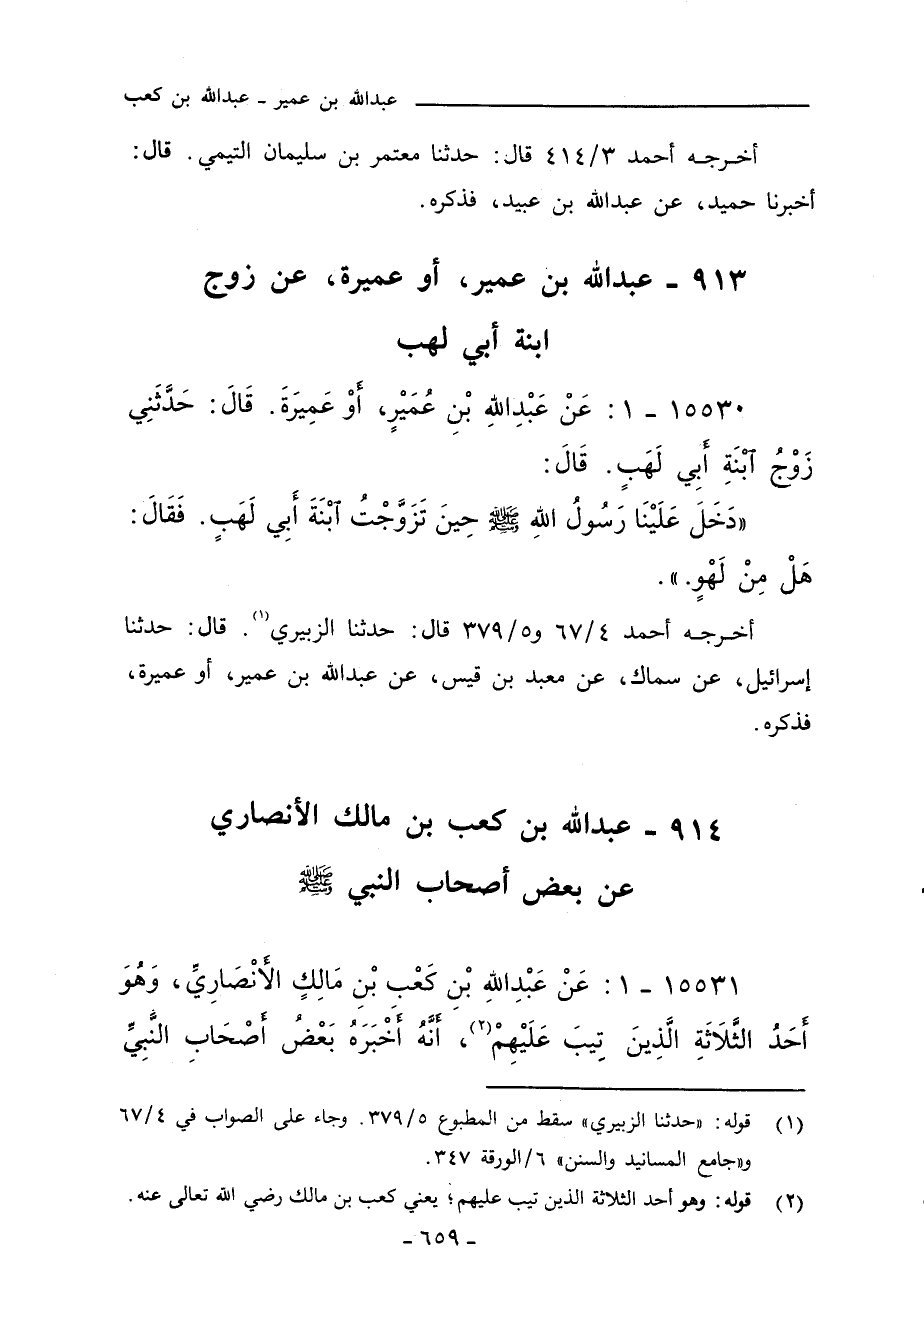 عبدالله بن عمير ـ عبدالله بن كعب
أخـرجـه أحمد ٤١٤/٣ قال: حدثنا معتمر بن سليمان التيمي. قال:
أخبرنا حميد، عن عبدالله بن عبيد، فذكره.
٩١٣ ـ عبدالله بن عمير، أو عميرة، عن زوج
ابنة أبي لهب
١٥٥٣٠ ـ ١: عَنْ عَبْدِاللهِ بْنِ عُمَيْرٍ، أَوْ عَمِيرَةَ. قَالَ: حَدَّثَنِي
زَوْجُ ٱبْنَةِ أَبِي لَهَبٍ. قَالَ:
«دَخَلَ عَلَيْنَا رَسُولُ اللهِ ﷺ حِينَ تَزَوَّجْتُ ٱبْنَةَ أَبِي لَهَبٍ. فَقَالَ:
هَلْ مِنْ لَهْوٍ.».
أخـرجـه أحمد ٦٧/٤ و٣٧٩/٥ قال: حدثنا الزبيري(١). قال: حدثنا
إسرائيل، عن سماك، عن معبد بن قيس، عن عبدالله بن عمير، أو عميرة،
فذكره.
٩١٤ ـ عبدالله بن كعب بن مالك الأنصاري
عن بعض أصحاب النبي ﷺ
١٥٥٣١ ـ ١: عَنْ عَبْدِاللهِ بْنِ كَعْبِ بْنِ مَالِكٍ الأَنْصَارِيِّ، وَهُوَ
أَحَدُ الثَّلَاثَةِ الَّذِينَ تِيبَ عَلَيْهِمْ(٢)، أَنَّهُ أَخْبَرَهُ بَعْضُ أَصْحَابِ النَّبِيِّ
(١) قوله: «حدثنا الزبيري» سقط من المطبوع ٣٧٩/٥. وجاء على الصواب في ٦٧/٤
و«جامع المسانيد والسنن» ٦/الورقة ٣٤٧.
(٢) قوله: وهو أحد الثلاثة الذين تيب عليهم؛ يعني كعب بن مالك رضي الله تعالى عنه.
ـ ٦٥٩ ـ